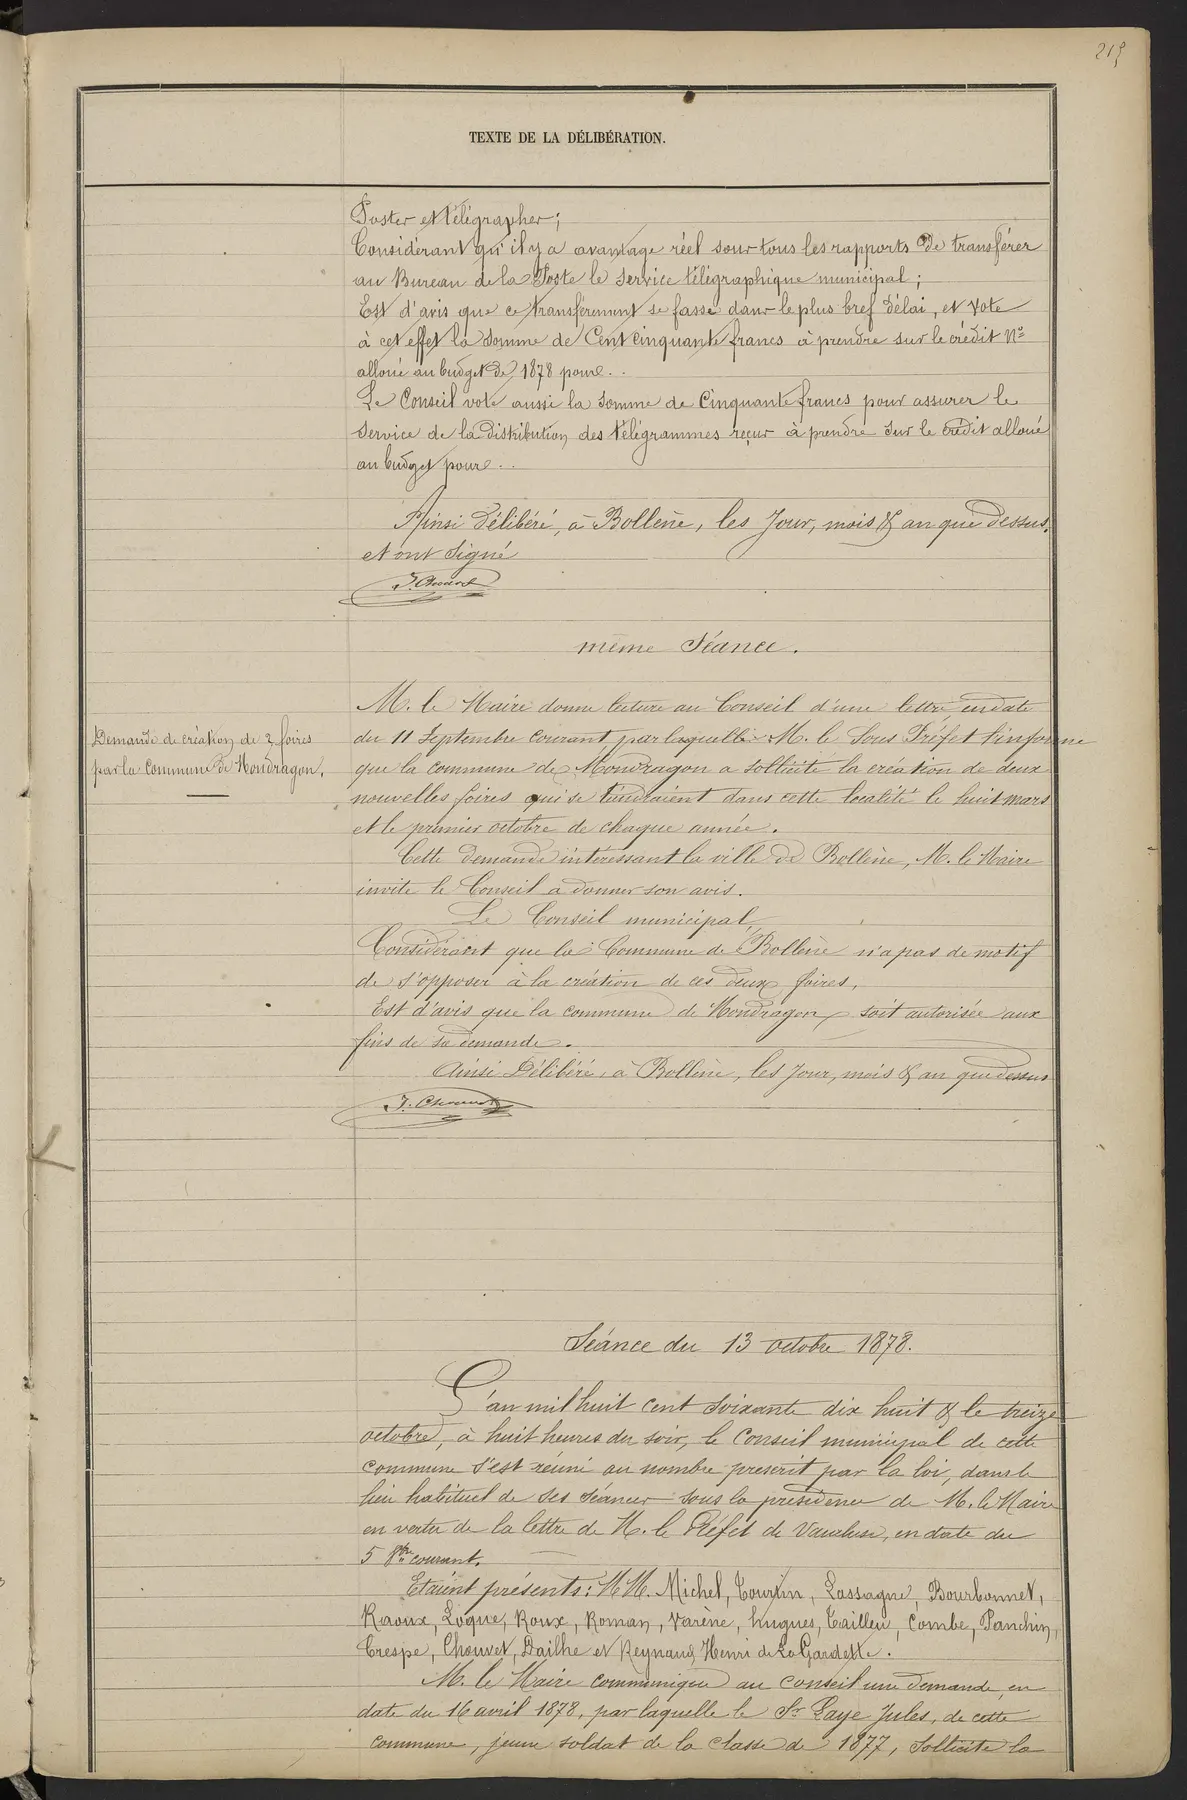 219
TEXTE DE LA DÉLIBÉRATION.
Poster et télégrapher;
Considérant qu'il y a avantage réel sous tous les rapports de transférer
au Bureau de la Poste le service télégraphique municipal;
Est d'avis que ce transfèrement se fasse dans le plus bref délai, et vote
à cet effet la somme de Cent cinquante francs à prendre sur le crédit No
alloué au budget de 1878 pour..
Le Conseil vote aussi la somme de Cinquante francs pour assurer le
service de la distribution des télégrammes reçus à prendre sur le crédit alloué
au budget pour..
Ainsi délibéré, à Bollène, les Jour, mois & an que dessus,
et ont signé
J. Chouvet
même Séance.
Demande de création de 2 foires
par la commune de Mondragon.
M. le Maire donne lecture au Conseil d'une lettre en date
du 11 Septembre courant par laquelle M. le Sous Préfet l'informe
que la commune de Mondragon a sollicité la création de deux
nouvelles foires qui se tiendraient dans cette localité le huit mars
et le premier octobre de chaque année.
Cette demande intéressant la ville de Bollène, M. le Maire
invite le Conseil à donner son avis.
Le Conseil municipal,
Considérant que la Commune de Bollène n'a pas de motif
de s'opposer à la création de ces deux foires,
Est d'avis que la commune de Mondragon soit autorisée aux
fins de sa demande.
Ainsi Délibéré, à Bollène, les Jour, mois & an que dessus
J. Chouvet
Séance du 13 octobre 1878.
L'an mil huit cent soixante dix huit & le treize
octobre, à huit heures du soir, le Conseil municipal de cette
commune s'est réuni au nombre prescrit par la loi, dans le
lieu habituel de ses séances sous la présidence de M. le Maire
en vertu de la lettre de M. le Préfet de Vaucluse, en date du
5 8bre courant.
Etaient présents: MM. Michel, Tourtin, Lassagne, Bourbonnet,
Raoux, Loque, Roux, Roman, Varène, hugues, Tailleu, Combe, Panchin,
Crespe, Chouvet, Dailhe et Reynaud Henri de La Gardette.
M. le Maire communique au conseil une demande, en
date du 16 avril 1878, par laquelle le Sr Laye Jules, de cette
commune, jeune soldat de la classe de 1877, sollicite la